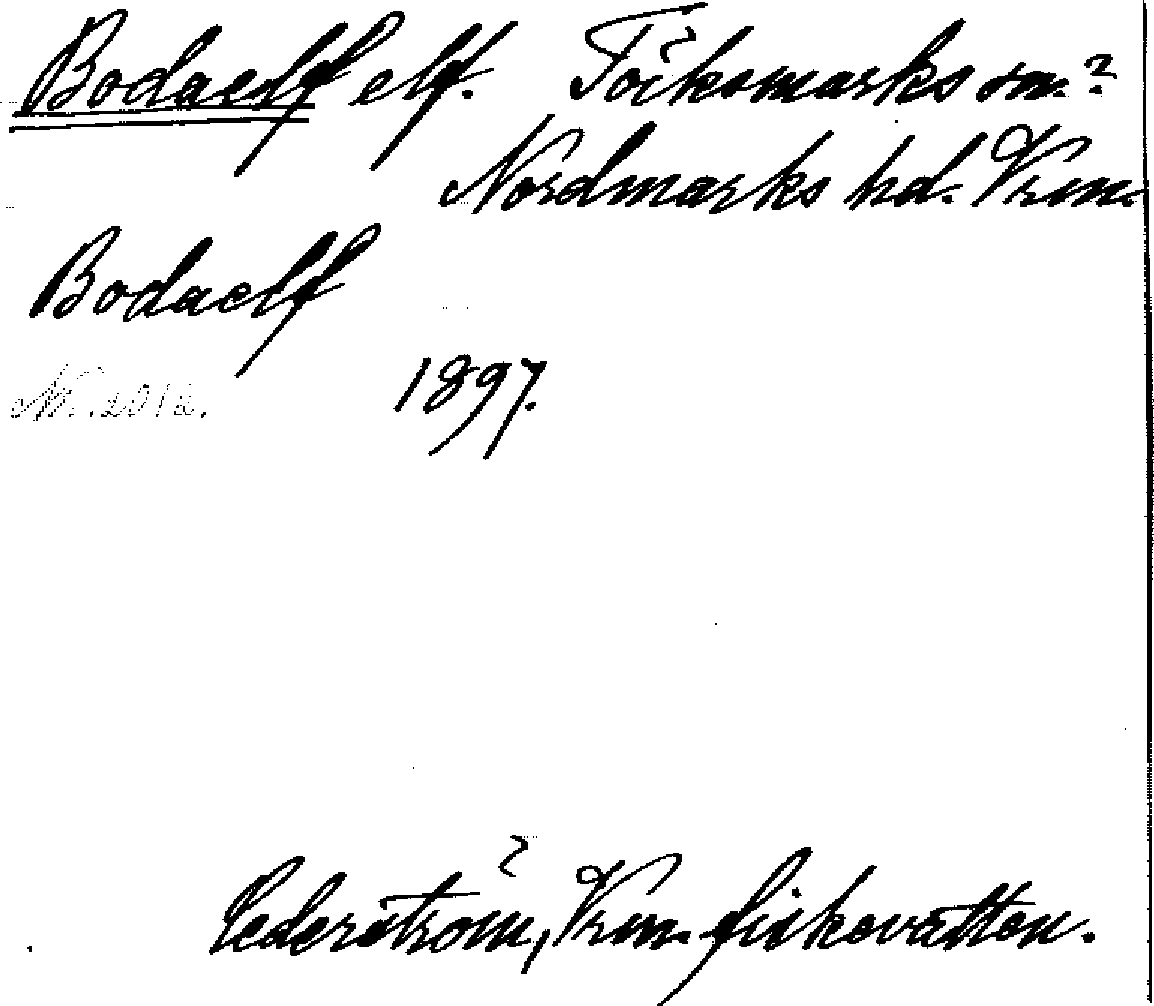 Bodaelf elf. Töcksmarks sn.?
Nordmarks hd. Vrm.
Bodaelf
N:. 2012. 1897.
Cederström, Vrm. fiskevatten.